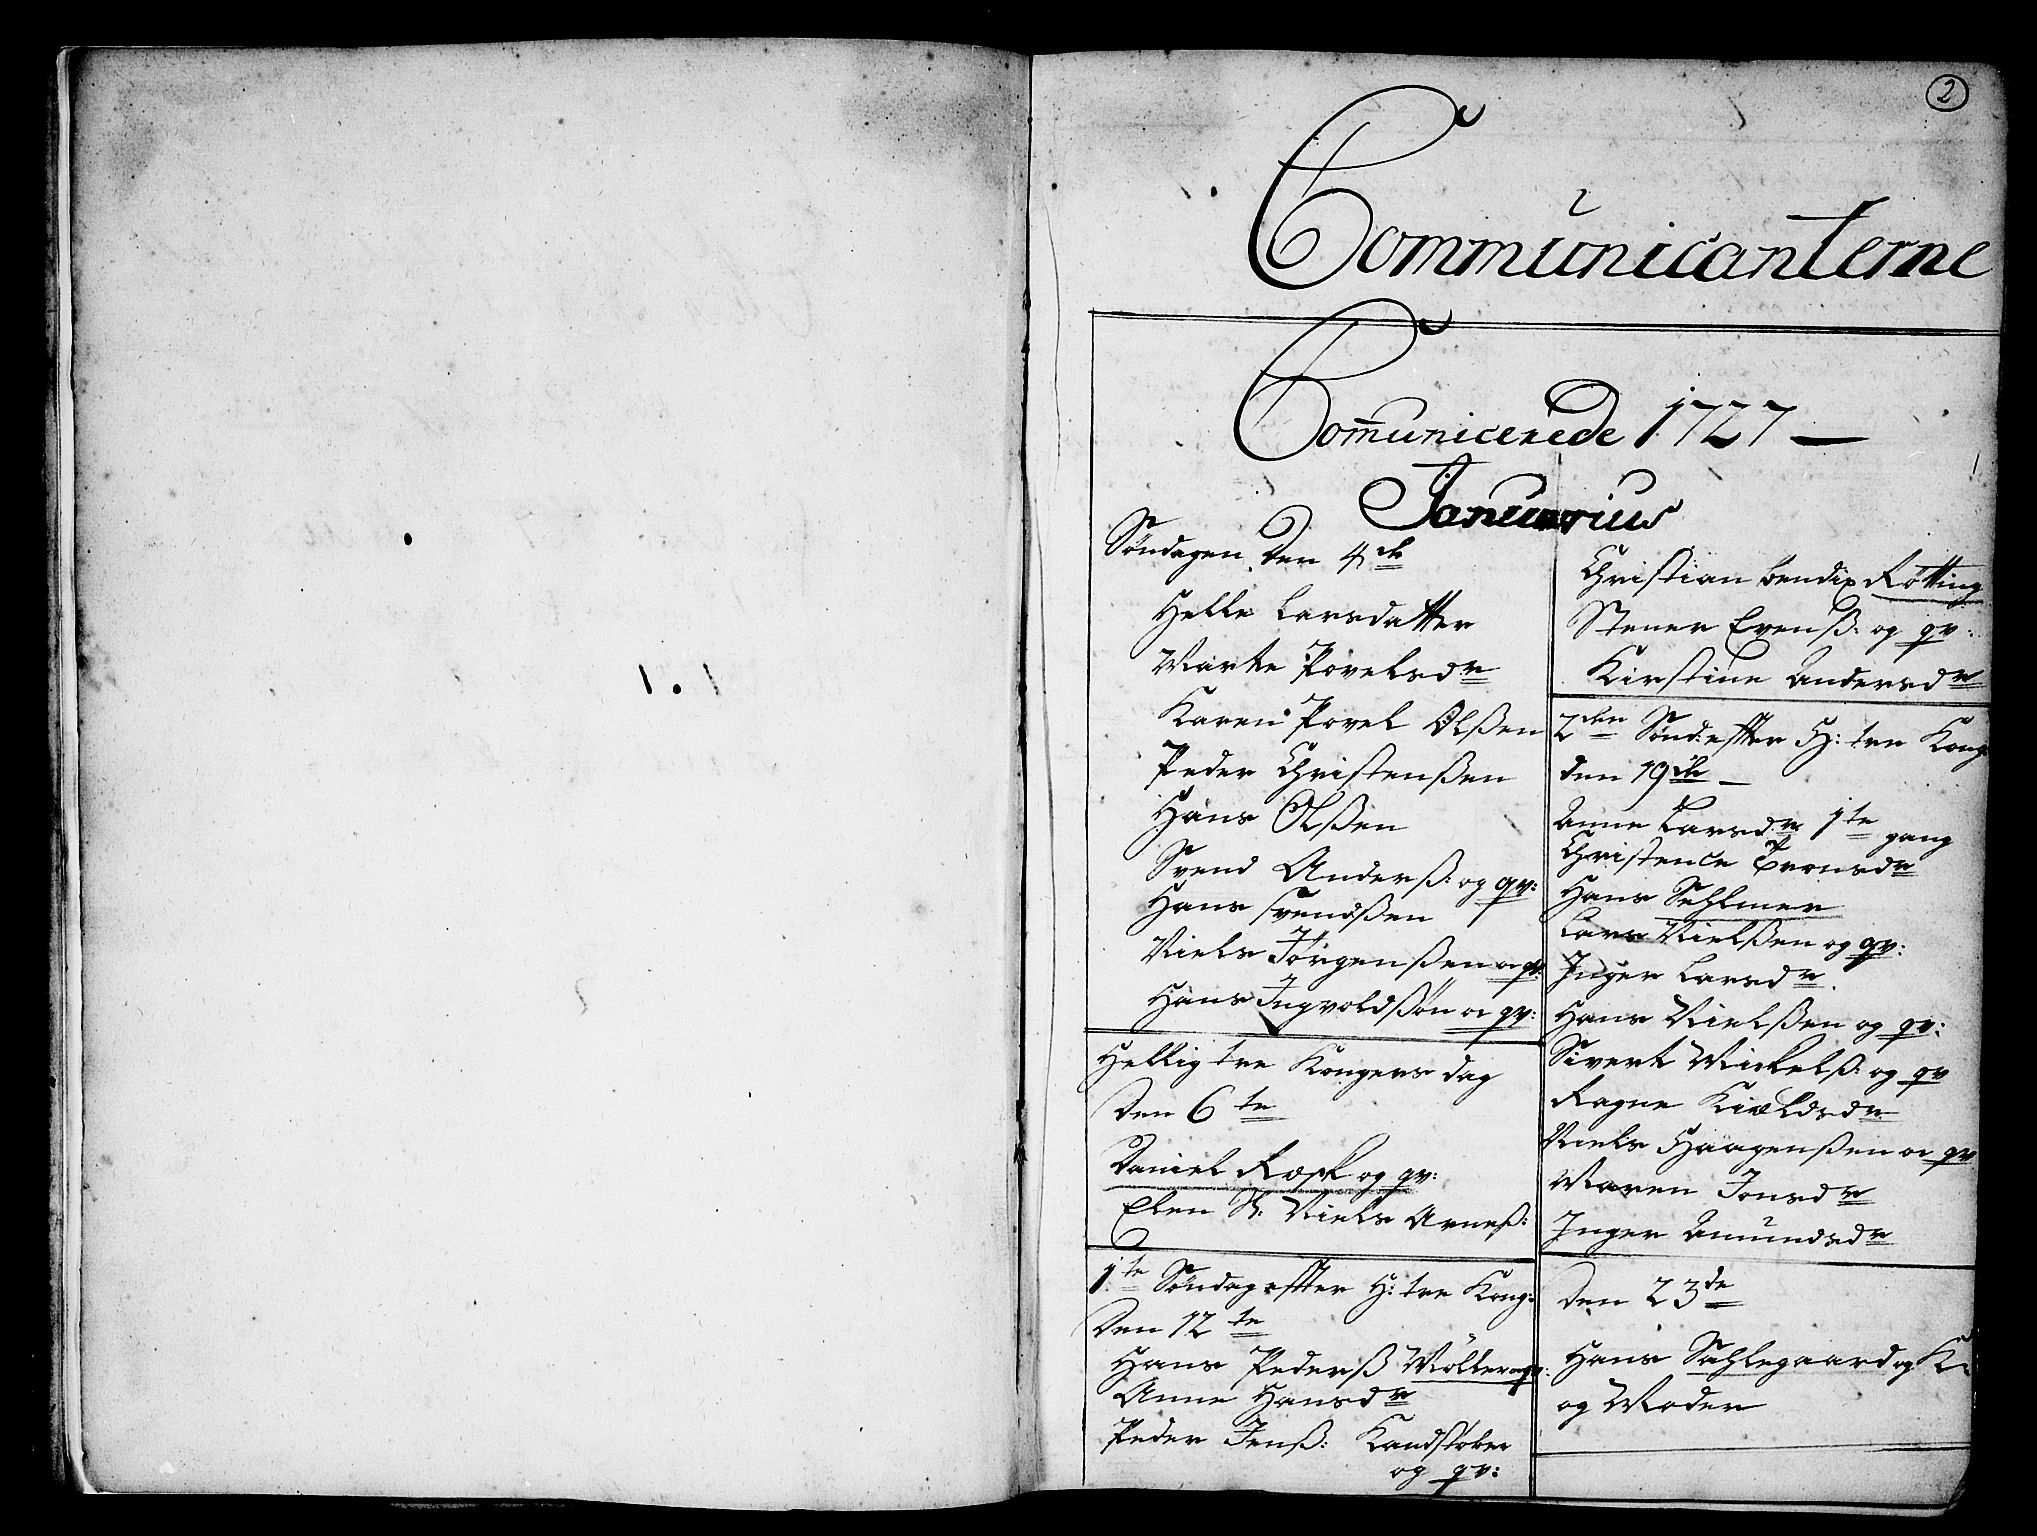 2
Communicanterne
Communicerede 1727 —
Januarius
Søndagen den 4de
Helle Larsdatter
Marte Povelsdr
Karen Povel Olßen
Peder Christenßen
Hans Olßen
Svend Anderß: og qv:
Hans Svendßen
Niels Jørgenßen oc qv:
Hans Ingvoldßøn oc qv:
Hellig tre Kongers dag
den 6te
Daniel Rask og qv:
Elen S: Niels Arneß:
1te Søndag effter H: tre Kong:
den 12te
Hans Pederß Møller og qv:
Anne Hansdr
Peder Jenß: Kandstøber
og qv:
Christian Bendix Røtting
Stener Evenß: og qv:
Kirstine Andersdr
2den Sønd: effter H: tre Kong:
den 19de —
Anne Larsdr 1te gang
Christence Tronsdr
Hans Sehlmer
Lars Nielßen og qv:
Inger Larsdr
Hans Nielßen og qv:
Sivert Mickelß: og qv
Ragne Kieldsdr
Niels Haagenßen oc qv
Maren Jonsdr
Inger Amundsdr
den 23de
Hans Sahlegaard og K:
og Moder